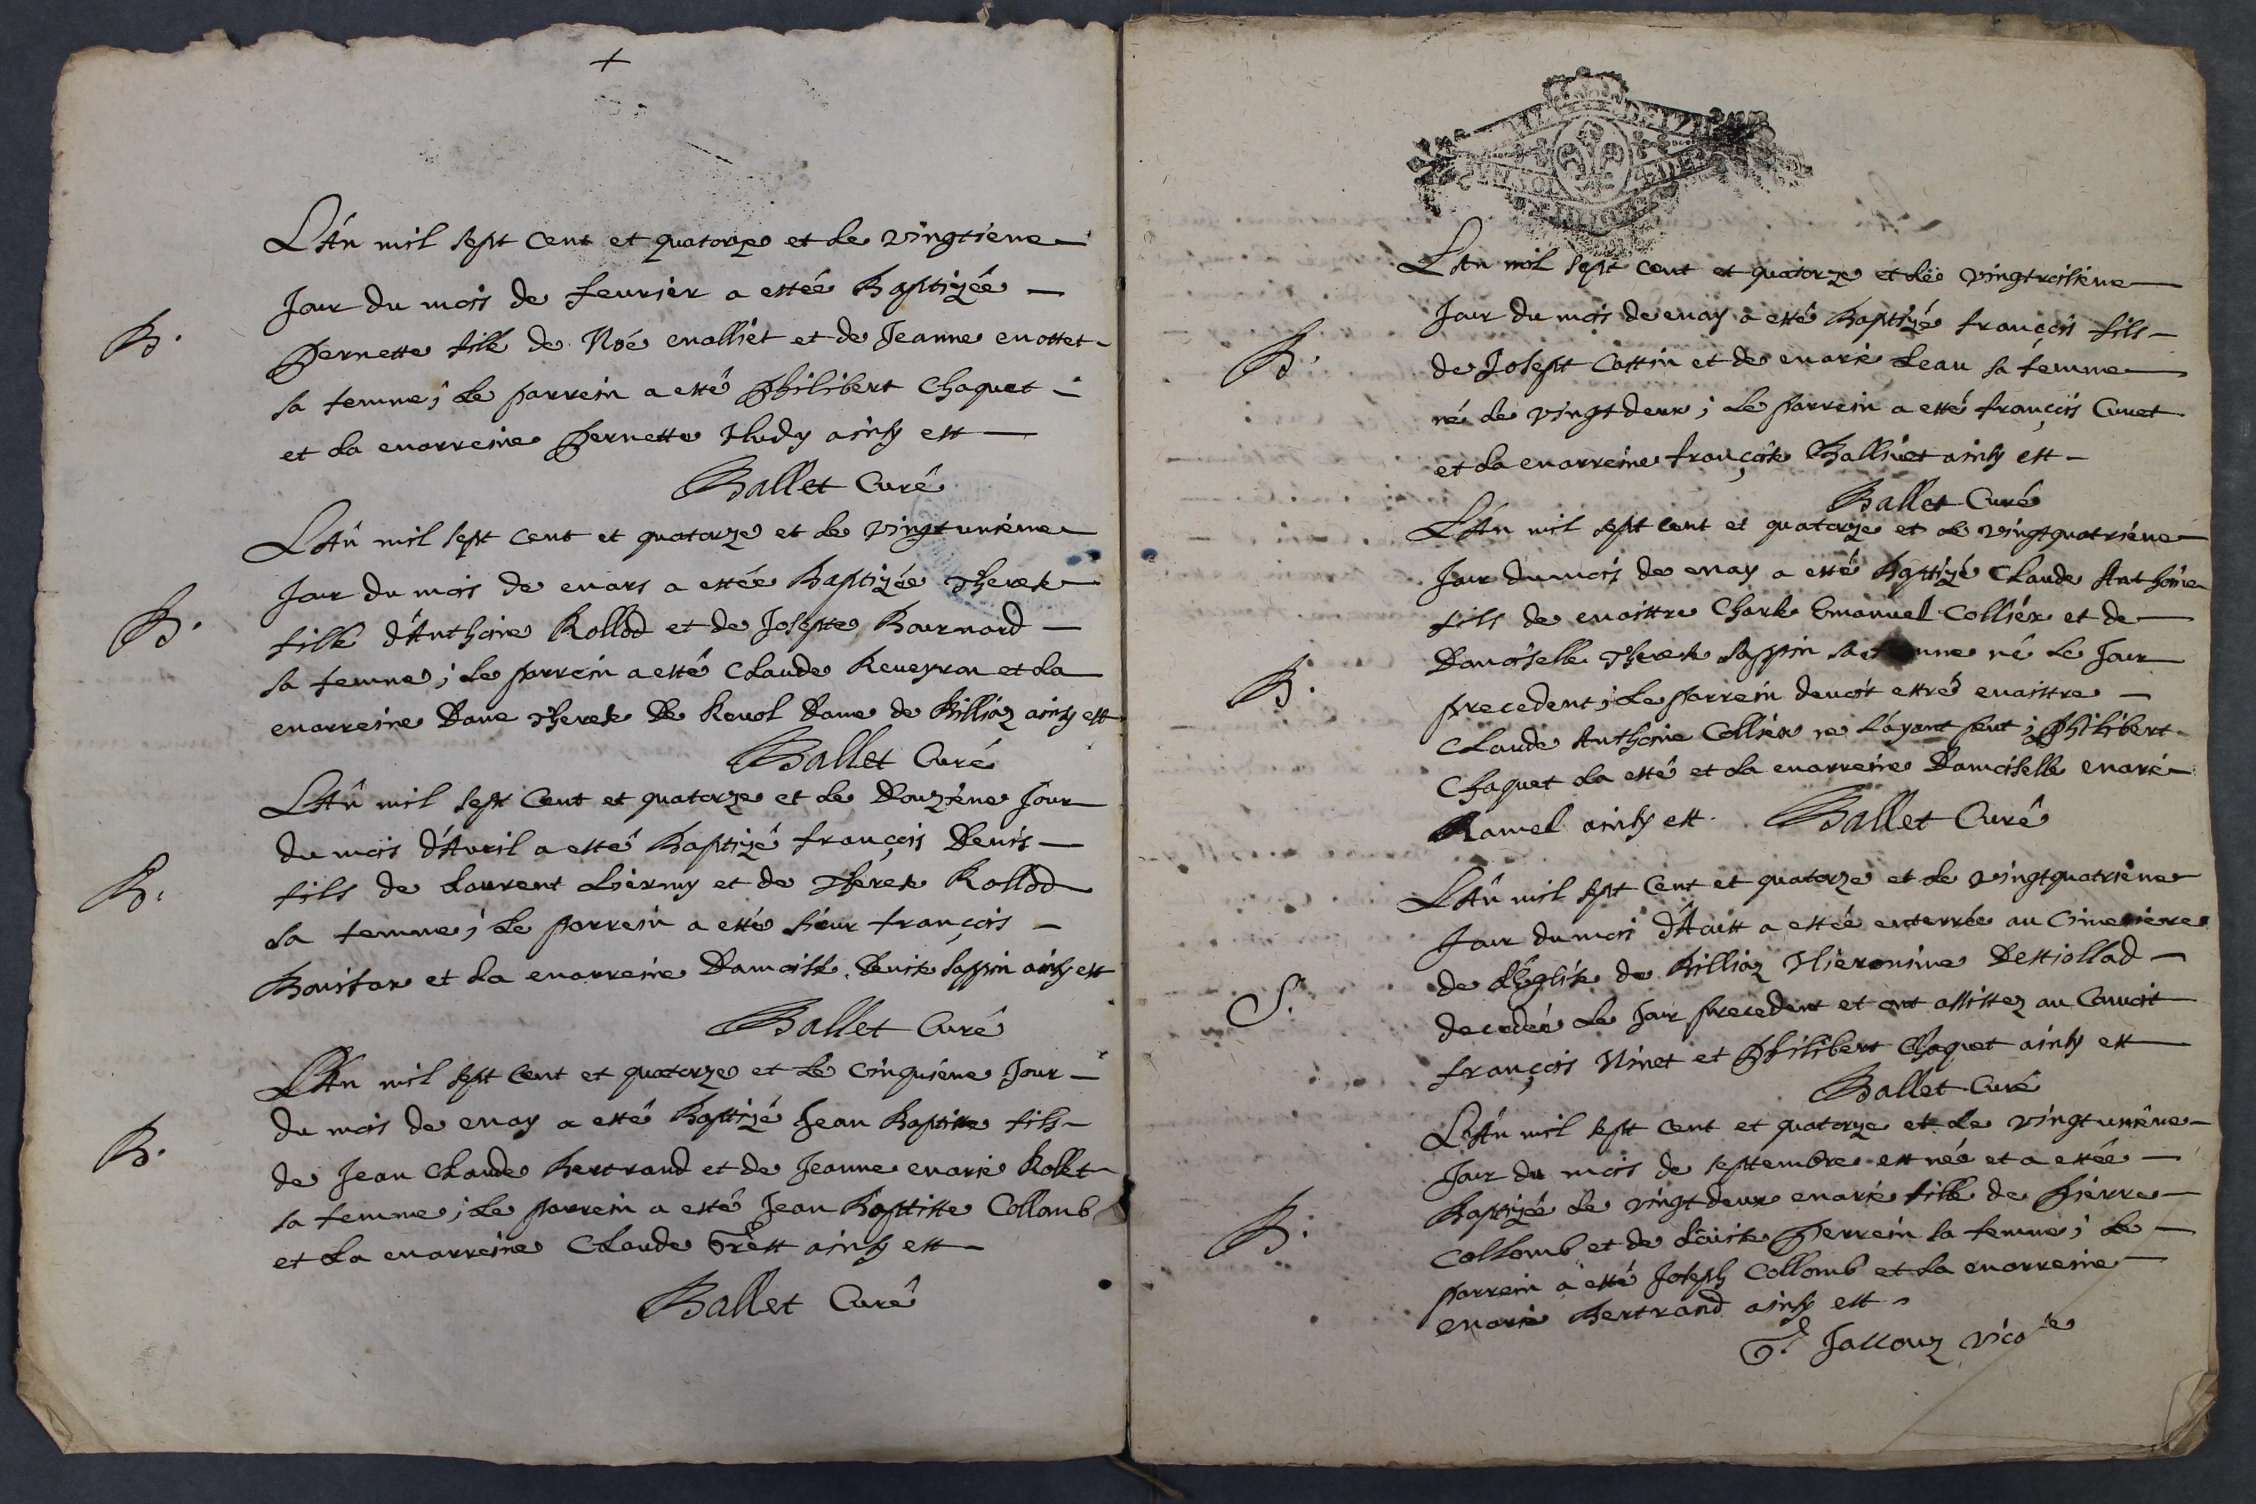 B.
L'An mil sept cent et quatorze et le vingtieme
Jour du mois de feurier a estée Baptizée
Pernette fille de Noé Malliet et de Jeanne Mottet
sa femme; le parrein a esté Philibert Chaquet
et la Marreine Pernette Hudry ainsy est
Ballet Curé
B.
L'An mil sept cent et quatorze et le vingtuniéme
Jour du mois de Mars a estée Baptizée Therese
fille d'Anthoine Rollod et de Josepte Bournard
sa femme; le parrein a esté Claude Reueyron et la
Marreine Dame Therese De Reuol Dame de Billiaz ainsy est
Ballet Curé
B.
L'An mil sept Cent et quatorze et le Douziéme Jour
du mois d'Auril a esté Baptizé François Denis
fils de Laurent Liermy et de Therese Rollod
sa femme; le parrein a esté sieur François
et la Marreine Damoisle Denise Sappin ainsy est
Ballet Curé
B.
L'An mil sept cent et quatorze et Le Cinquiéme Jour
du mois de May a esté Baptizé Jean Baptiste fils
de Jean Claude Bertrand et de Jeanne Marie Rollet
sa femme; le parrein a esté Jean Baptiste Collomb
et La Marreine Claude ainsy est
Ballet Curé
B.
L'An mil sept cent et quatorze et le vingtroisiéme
Jour du mois de May a esté Baptizé François fils
de Josept Cottin et de Marie Leau sa femme
né le vingt deux; Le parrein a esté François Cuuet
et La Marreine Françoise Balliuet ainsy est
Ballet Curé
B.
L'An mil sept cent et quatorze et le vingtquatriéme
Jour du mois de May a esté Baptizé Claude Anthoine
fils de Maistre Charle Emanuel Colliex et de
Damoiselle Therese Sappin sa femme né le Jour
precedent; Le parrein deuoit estre Maistre
Claude Anthoine Colliex ne L'ayant peut; Philibert
Chaquet La esté et La Marreine Damoiselle Marie
Ramel ainsy est. Ballet Curé
S.
L'An mil sept Cent et quatorze et le vingtquatriéme
Jour du mois d'Aoust a estée enterrée au Cimetiere
de L'Eglise de Billiaz Hieronime Destiollad
decedée Le Jour precedent et ont assistez au Conuoit
François Ninet et Philibert Chaquet ainsy est
Ballet Curé
B.
L'An mil sept cent et quatorze et le vingtuniéme
Jour du mois de septtembre est née et a estée
Baptizée le vingt deux Marie fille de Pierre
Collomb et de Loüise Perrein sa femme; le
parrein a esté Joseph Collomb et La Marreine
Marie Bertrand ainsy est
Jallouz vicre